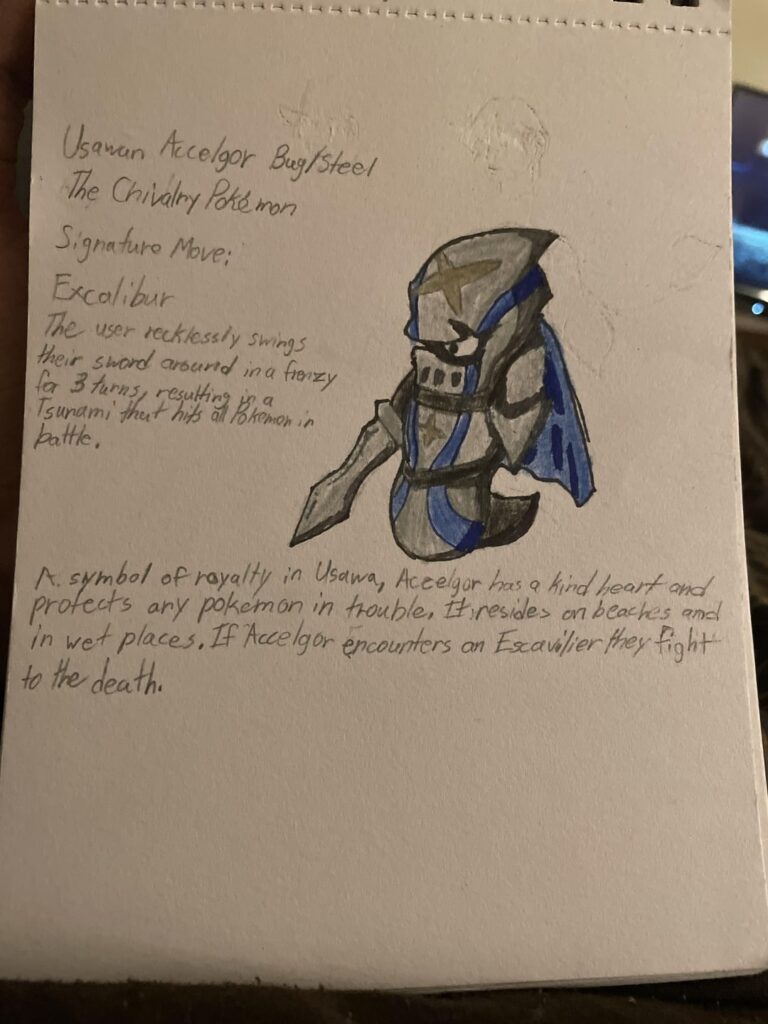 Usawan Accelgor Bug/Steel
The Chivalry Pokémon
Signature Move:
Excalibur
The user recklessly swings
their sword around in a frenzy
for 3 turns, resulting in a
Tsunami that hits all Pokemon in
battle.
A symbol of royalty in Usawa, Accelgor has a kind heart and
protects any pokemon in trouble. It resides on beaches and
in wet places. If Accelgor encounters an Escavilier they fight
to the death.